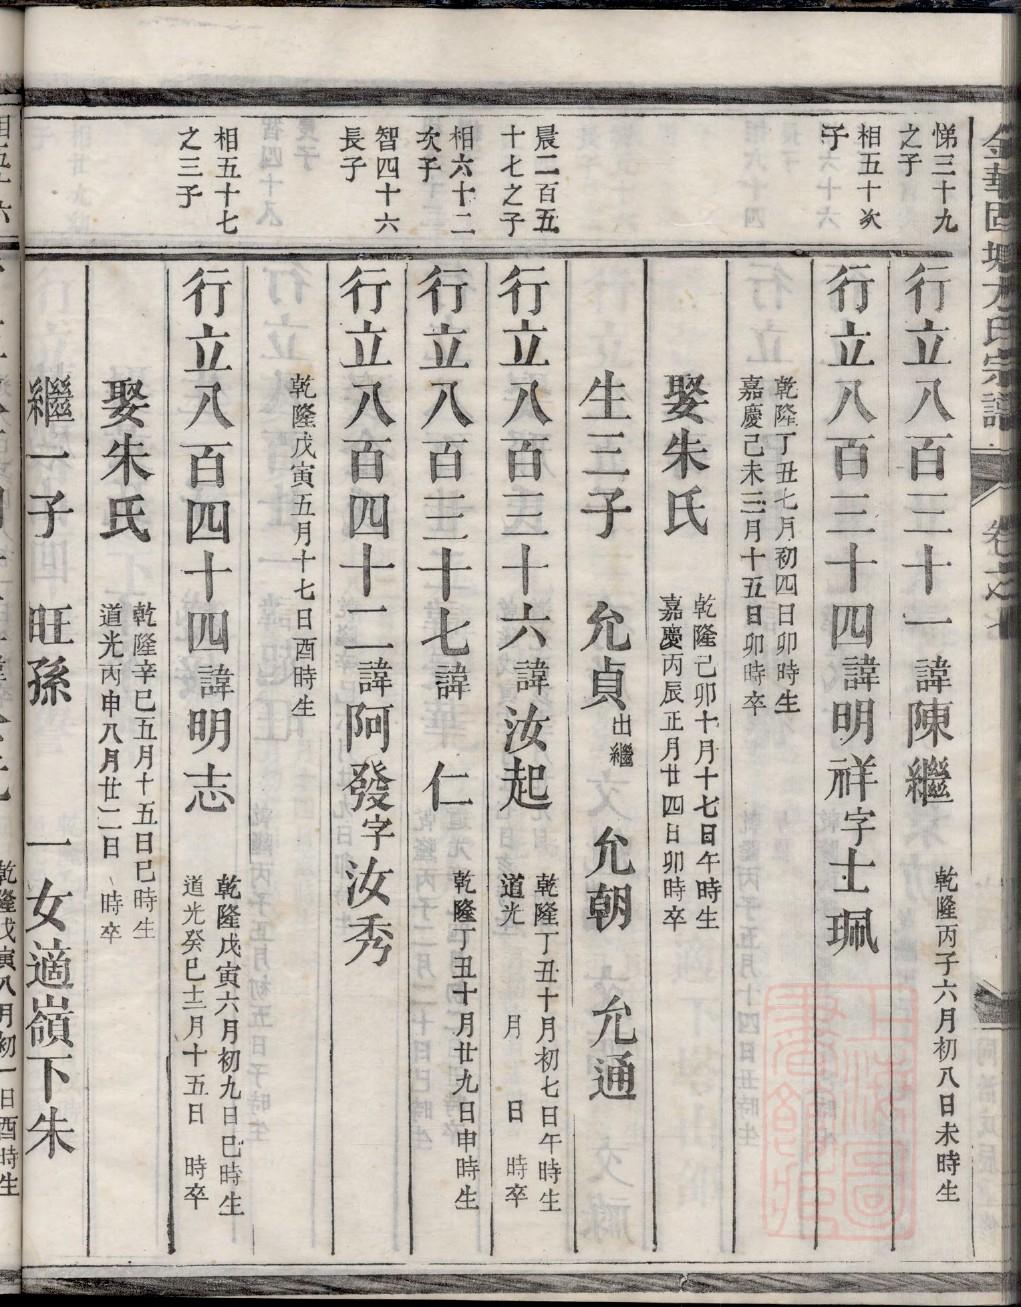 金華囬城方氏宗譜
卷之
悌三十九
之子
行立八百三十一諱陳繼
乾隆丙子六月初八日未時生
相五十次
子
行立八百三十四諱明祥字士珮
乾隆丁丑七月初四日卯時生
嘉慶己未三月十五日卯時卒
娶朱氏
乾隆己卯十月十七日午時生
嘉慶丙辰正月廿四日卯時卒
生三子 允貞出繼 允朝 允通
晨二百五
十七之子
行立八百三十六諱汝起
乾隆丁丑十月初七日午時生
道光 月 日 時卒
相六十二
次子
行立八百三十七諱 仁
乾隆丁丑十月廿九日申時生
智四十六
長子
行立八百四十二諱阿發字汝秀
乾隆戊寅五月十七日酉時生
相五十七
之三子
行立八百四十四諱明志
乾隆戊寅六月初九日巳時生
道光癸巳十二月十五日 時卒
娶朱氏
乾隆辛巳五月十五日巳時生
道光丙申八月廿二日 時卒
繼一子 旺孫 一女適嶺下朱
乾隆戊寅八月初一日酉時生